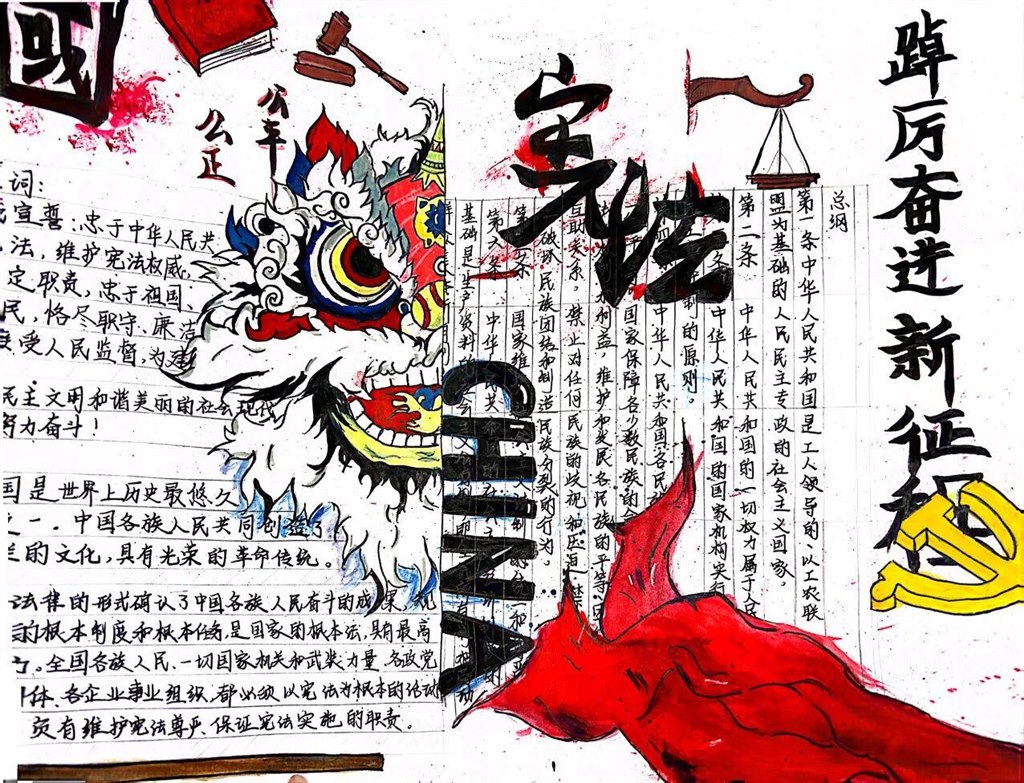 國
公平
公正
宪法
踔厉奋进新征程
词:
宣誓:忠于中华人民共
法,维护宪法权威,
定职责,忠于祖国、
民,恪尽职守、廉洁
受人民监督,为建
民主文明和谐美丽的社会现代
努力奋斗!
国是世界上历史最悠久
之一。中国各族人民共同创造了
的文化,具有光荣的革命传统。
法律的形式确认了中国各族人民奋斗的成果,
的根本制度和根本任务,是国家的根本法,具有最高
。全国各族人民、一切国家机关和武装力量、各政党
体、各企业事业组织,都必须以宪法为根本的活动
负有维护宪法尊严、保证宪法实施的职责。
CHINA
总纲
第一条中华人民共和国是工人领导的、以工农联
盟为基础的人民民主专政的社会主义国家
第二条 中华人民共和国的一切权力属于人民
中华人民共和国的国家机构实行
制的原则。
中华人民共和国各民族
国家保障各少数民族的合
益,维护和发展各民族的平等团
互助关系。禁止对任何民族的歧视和压迫,禁
破坏民族团结和制造民族分裂的行为。
国家维
第六条 中华
基础是生产资料的